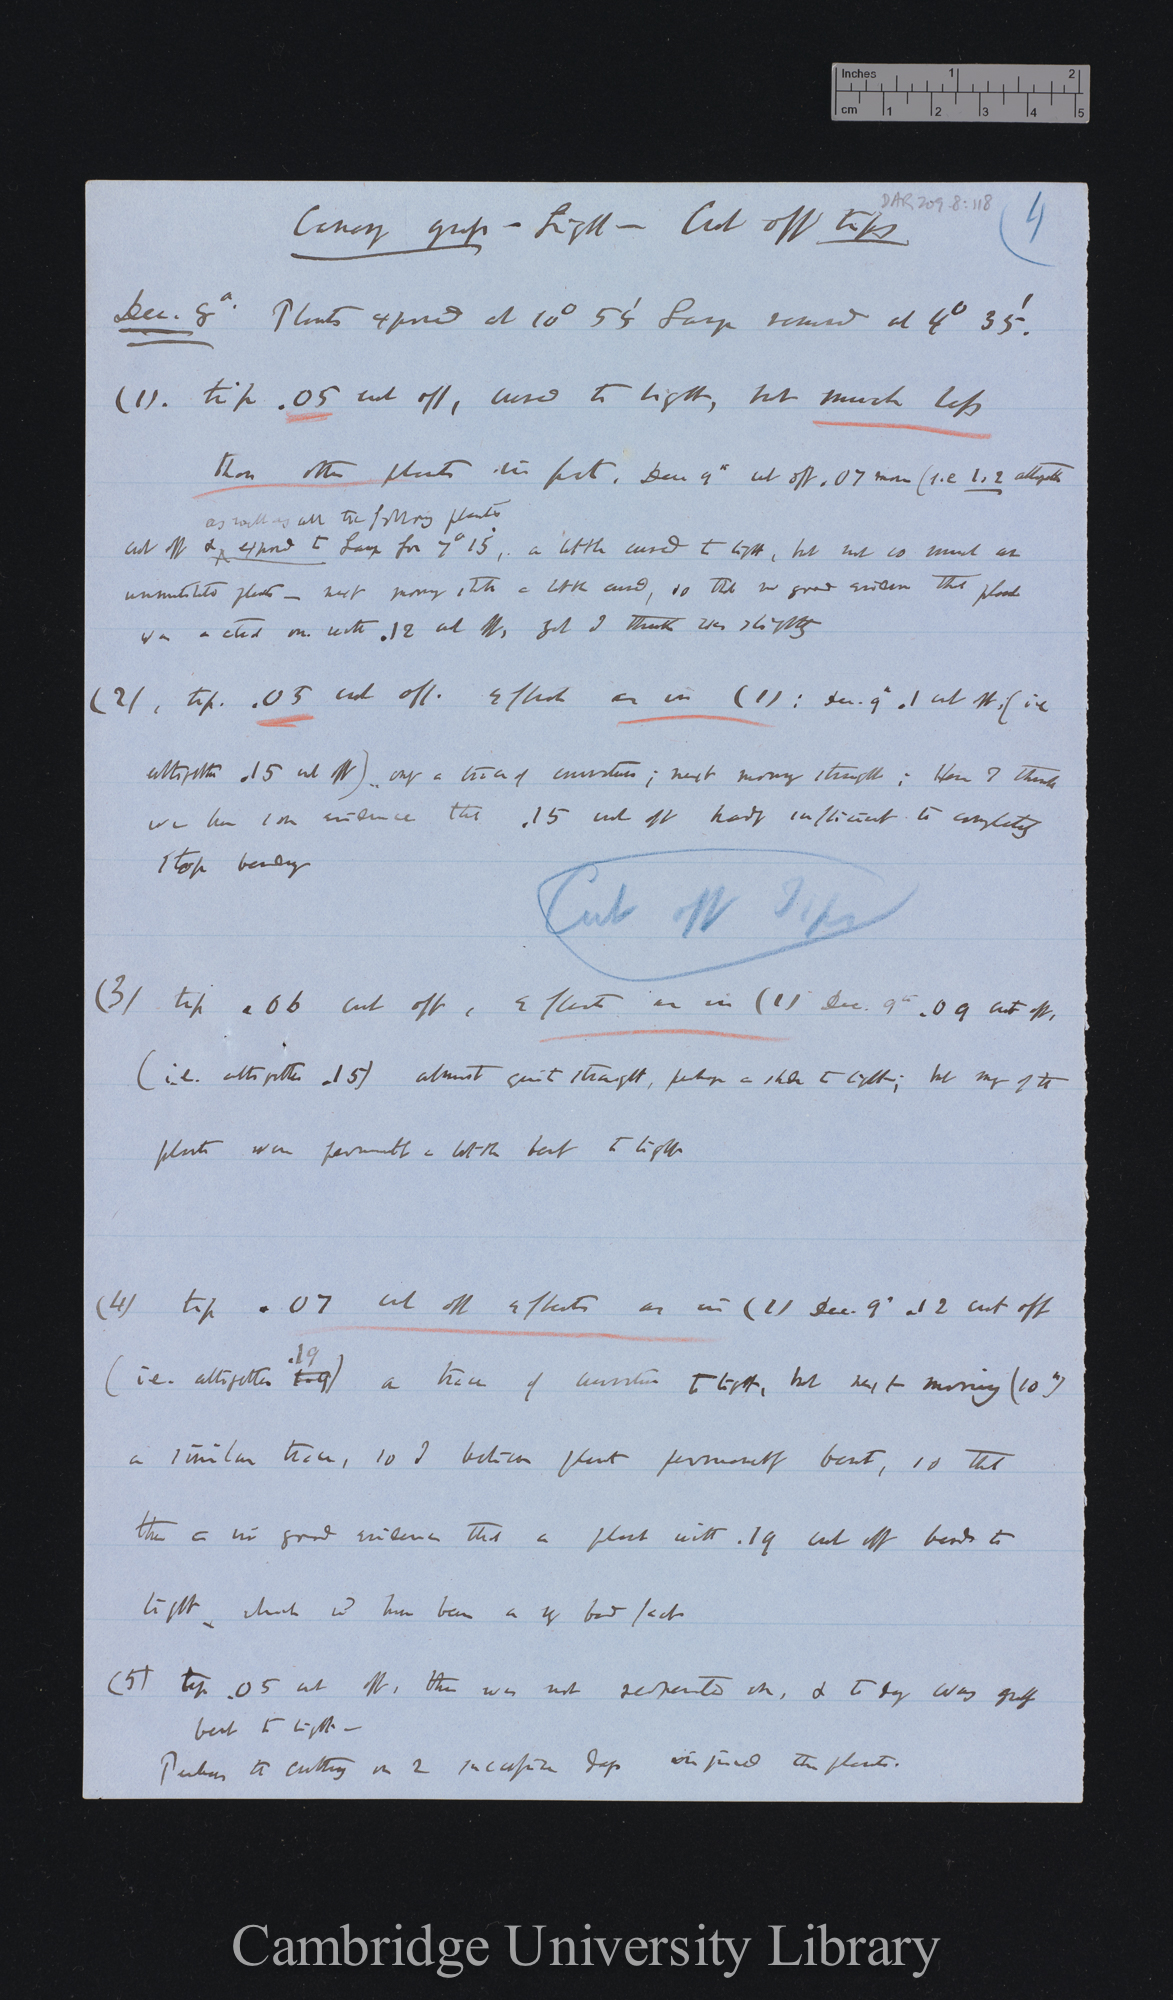 Inches 1 2
cm 1 2 3 4 5
DAR 209.8:118
4
Canary grass - Light - Cut off tips
Dec. 8th. Plants exposed at 10° 55' Lamp removed at 4° 35'.
(1). tip .05 cut off, curved to light, but much less
than other plants in pot. Dec 9th cut off .07 more (i.e. 1.2 altogether
as well as all the following plants
cut off & exposed to Lamp for 7° 15', a little curved to light, but not so much as
unmutilated plants - next morng still a little curved, so that no good evidence that plant
was acted on with .12 cut off, yet I think was slightly
(2), tip .05 cut off. effect as in (1): Dec. 9th .1 cut off; (i.e
altogether .15 cut off) only a trace of curvature; next morng straight; Here I think
we have some evidence that .15 cut off hardly sufficient to completely
stop bending
Cut off Tips
(3) tip .06 cut off, effects as in (1) Dec. 9th .09 cut off,
(i.e. altogether .15) almost quite straight, perhaps a shade to light; but
plants were permanently a little bent to light
(4) tip .07 cut off effects as in (1) Dec. 9th .12 cut off
.19
(i.e. altogether) a trace of curvature to light, but next morning (10th)
a similar trace, so I believe plant permanently bent, so that
there is no good evidence that a plant with .19 cut off bends to
light, which wd have been a very bad fact
(5) tip .05 cut off, this was not reoperated on, & to day was greatly
bent to light -
Perhaps the cutting on 2 successive days injured the plants.
Cambridge University Library